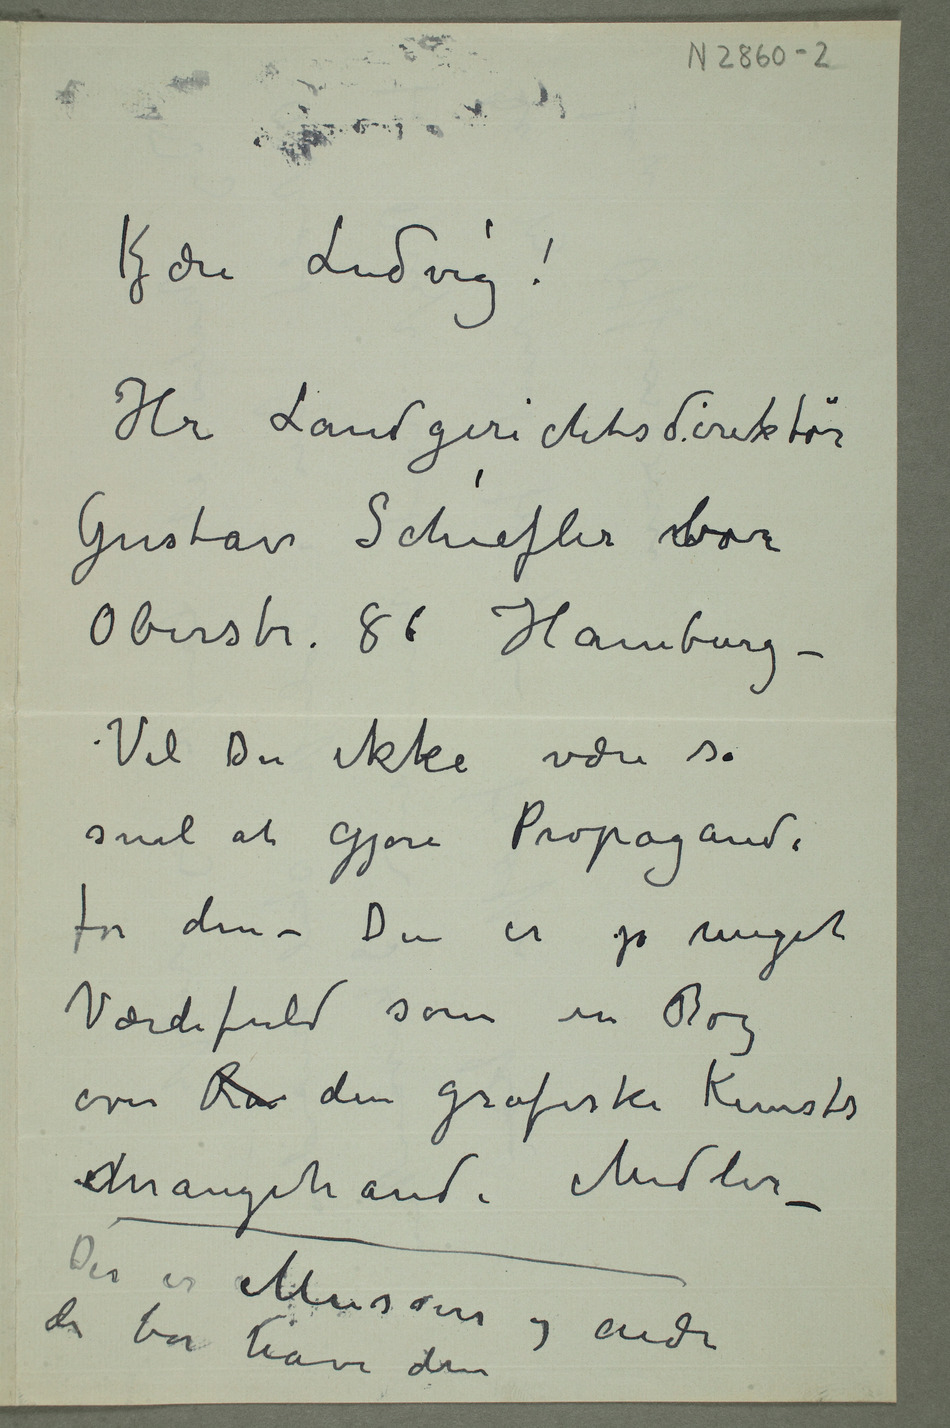 N 2860-2
Kjære Ludvig!
Hr Landgerichtsdirektör
Gustav Schiefler bor
Oberstr. 86 Hamburg –
Vil Du ikke være så
snil at gjøre Propaganda
for den – Den er jo meget
Værdifuld som en Bog
over den grafiske Kunsts
Mangehånde Midler –
Der er Museer og andre
der bør have den